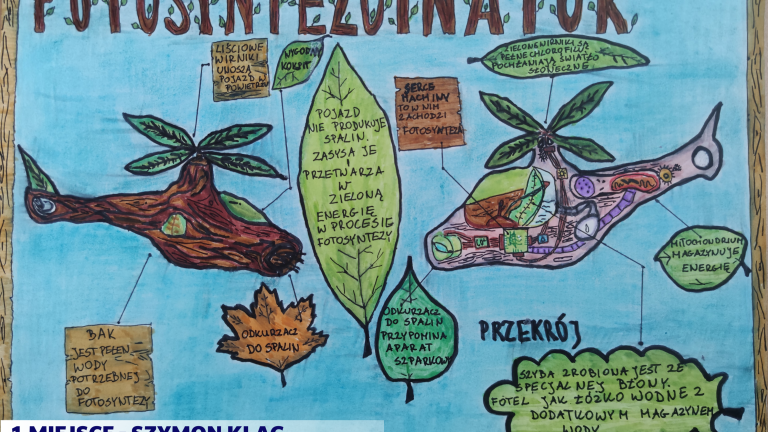 FOTOSYNTEZOLNATOR.
LIŚCIONE
WIRNIKI
UNOSZĄ
POJAZD W
POWIETRZU
WYGODNY
KOKPIT
POJAZD
NIE PRODUKUJE
SPALIN.
ZASYSA JE
I
PRZETWARZA
W
ZIELONĄ
ENERGIĘ
W PROCESIE
FOTOSYNTEZY
SERCE
MACHINY
TO W NIM
ZACHODZI
FOTOSYNTEZA
ZIELONE WIRNIKI SĄ
PEŁNE CHLOROFILU
POCHŁANIAJĄ ŚWIATŁO
SŁONECZNE
MITOCHONDRIUM
MAGAZYNUJE
ENERGIĘ
BAK
JEST PEŁEN
WODY
POTRZEBNEJ
DO
FOTOSYNTEZY
ODKURZACZ
DO SPALIN
ODKURZACZ
DO SPALIN
PRZYPOMINA
APARAT
SZPARKOWY
PRZEKRÓJ
SZYBA ZROBIONA JEST ZE
SPECJALNEJ BŁONY.
FOTEL JAK ŁÓŻKO WODNE Z
DODATKOWYM MAGAZYNEM
WODY
1 MIEJSCE - SZYMON